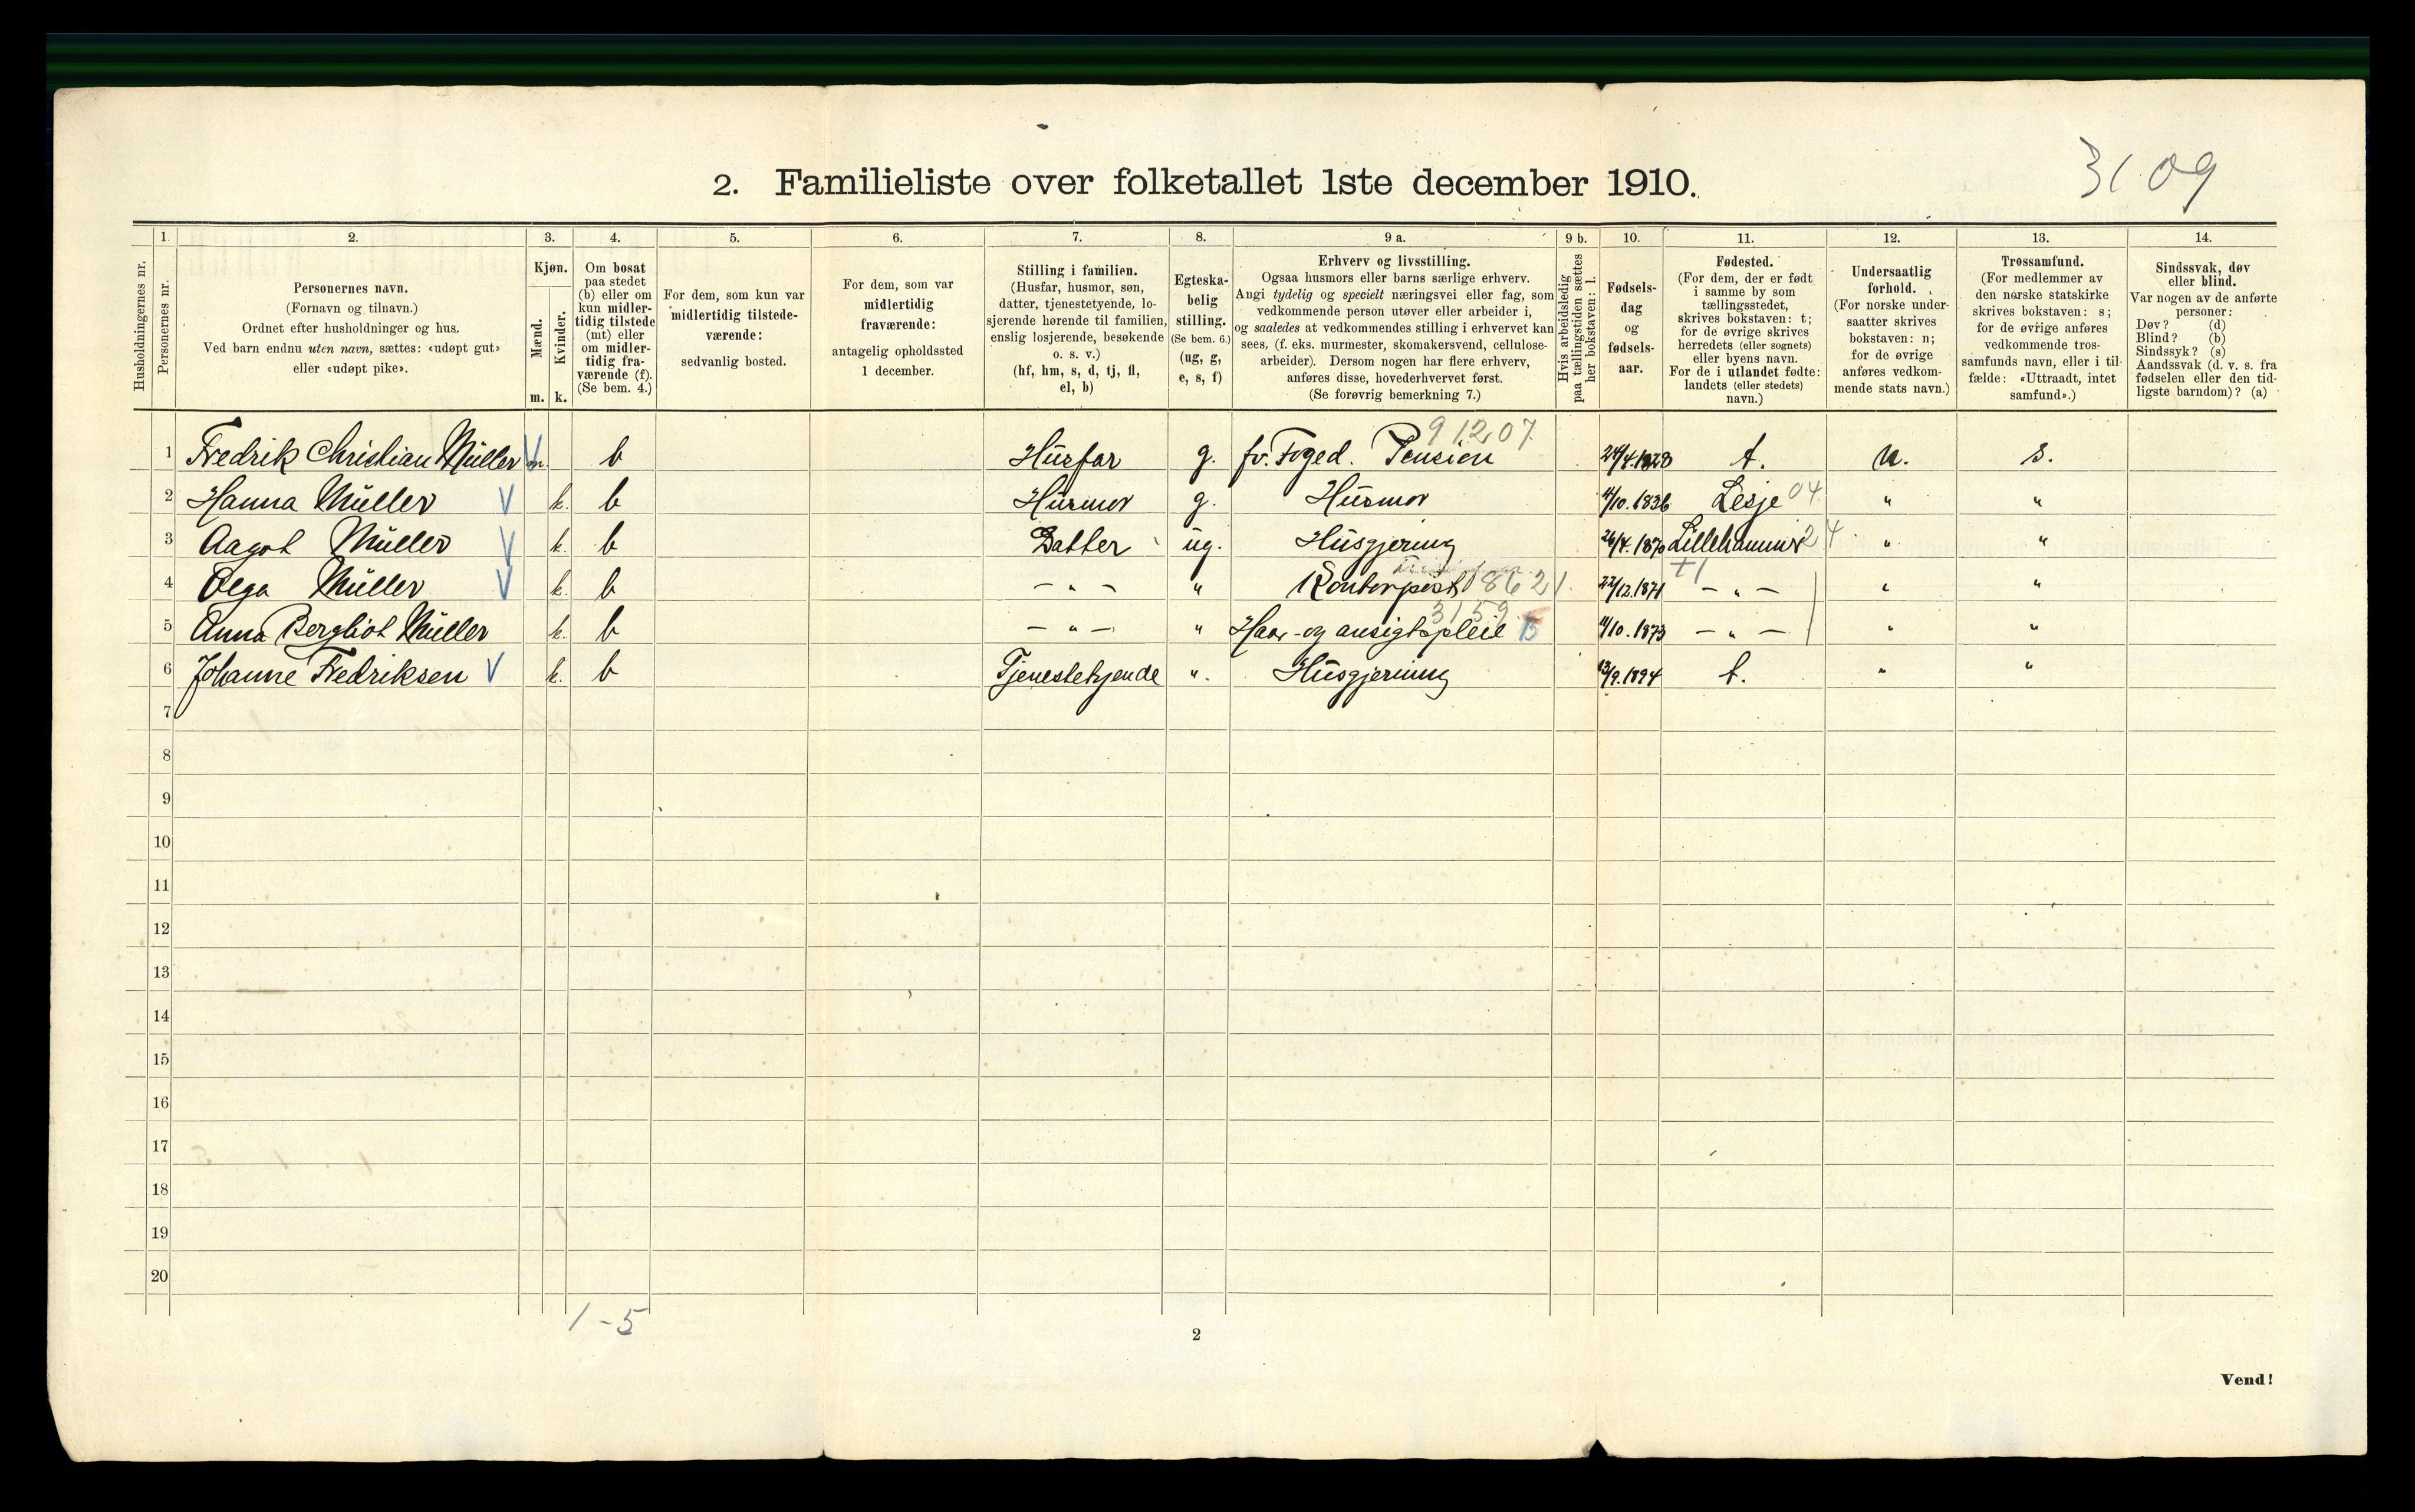 3109
2. Familieliste over folketallet 1ste december 1910.
1. 2. 3. 4. 5. 6. 7. 8. 9 a. 9 b. 10. 11. 12. 13. 14.
Husholdningernes nr.
Personernes nr.
Personernes navn.
(Fornavn og tilnavn.)
Ordnet efter husholdninger og hus.
Ved barn endnu uten navn, sættes: «udøpt gut»
eller «udøpt pike».
Kjøn.
Mænd.
Kvinder.
m. k.
Om bosat
paa stedet
(b) eller om
kun midler-
tidig tilstede
(mt) eller
om midler-
tidig fra-
værende (f).
(Se bem. 4.)
For dem, som kun var
midlertidig tilstede-
værende:
sedvanlig bosted.
For dem, som var
midlertidig
fraværende:
antagelig opholdssted
1 december.
Stilling i familien.
(Husfar, husmor, søn,
datter, tjenestetyende, lo-
sjerende hørende til familien,
enslig losjerende, besøkende
o. s. v.)
(hf, hm, s, d, tj, fl,
el, b)
Egteska-
belig
stilling.
(Se bem. 6.)
(ug, g,
e, s, f)
Erhverv og livsstilling.
Ogsaa husmors eller barns særlige erhverv.
Angi tydelig og specielt næringsvei eller fag, som
vedkommende person utøver eller arbeider i,
og saaledes at vedkommendes stilling i erhvervet kan
sees, (f. eks. murmester, skomakersvend, cellulose-
arbeider). Dersom nogen har flere erhverv,
anføres disse, hovederhvervet først.
(Se forøvrig bemerkning 7.)
Hvis arbeidsledig
paa tællingstiden sættes
her bokstaven: l.
Fødsels-
dag
og
fødsels-
aar.
Fødested.
(For dem, der er født
i samme by som
tællingsstedet,
skrives bokstaven: t;
for de øvrige skrives
herredets (eller sognets)
eller byens navn.
For de i utlandet fødte:
landets (eller stedets)
navn.)
Undersaatlig
forhold.
(For norske under-
saatter skrives
bokstaven: n;
for de øvrige
anføres vedkom-
mende stats navn.)
Trossamfund.
(For medlemmer av
den norske statskirke
skrives bokstaven: s;
for de øvrige anføres
vedkommende tros-
samfunds navn, eller i til-
fælde: «Uttraadt, intet
samfund».)
Sindssvak, døv
eller blind.
Var nogen av de anførte
personer:
Døv? (d)
Blind? (b)
Sindssyk? (s)
Aandssvak (d. v. s. fra
fødselen eller den tid-
ligste barndom)? (a)
91207
1 Fredrik Christian Müller V m. b Husfar g. fv. Foged. Pension 24/4.1828 t. n. s.
2 Hanna Müller V k. b Husmor g. Husmor 4/10.1836 Lesje 04 " "
3 Aagot Müller V k. b Datter ug. Husgjerning 26/4.1870 Lillehammer 24 " "
4 Olga Müller V k. b - " - " Kontorpost 8621. 22/12.1871 - " - " "
3159
5 Anna Bergliot Müller k. b - " - " Haar- og ansigtspleie 11/10.1873 - " - " "
6 Johanne Fredriksen V k. b Tjenestetjende ". Husgjerning 13/9.1894 t. " "
7
8
9
10
11
12
13
14
15
16
17
18
19
20
1-5
2
Vend!